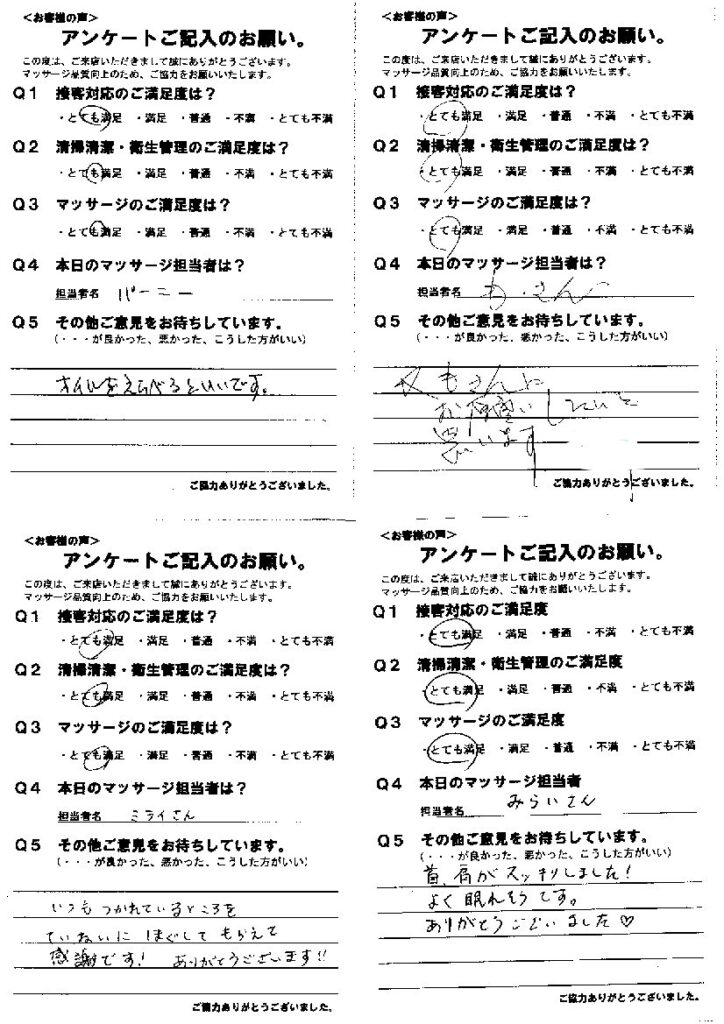 ＜お客様の声＞
アンケートご記入のお願い。
この度は、ご来店いただきまして誠にありがとうございます。
マッサージ品質向上のため、ご協力をお願いいたします。
Q1 接客対応のご満足度は？
・とても満足 ・満足 ・普通 ・不満 ・とても不満
Q2 清掃清潔・衛生管理のご満足度は？
・とても満足 ・満足 ・普通 ・不満 ・とても不満
Q3 マッサージのご満足度は？
・とても満足 ・満足 ・普通 ・不満 ・とても不満
Q4 本日のマッサージ担当者は？
担当者名 バーニー
Q5 その他ご意見をお待ちしています。
（・・・が良かった、悪かった、こうした方がいい）
オイルをえらべるといいです。
ご協力ありがとうございました。
＜お客様の声＞
アンケートご記入のお願い。
この度は、ご来店いただきまして誠にありがとうございます。
マッサージ品質向上のため、ご協力をお願いいたします。
Q1 接客対応のご満足度は？
・とても満足 ・満足 ・普通 ・不満 ・とても不満
Q2 清掃清潔・衛生管理のご満足度は？
・とても満足 ・満足 ・普通 ・不満 ・とても不満
Q3 マッサージのご満足度は？
・とても満足 ・満足 ・普通 ・不満 ・とても不満
Q4 本日のマッサージ担当者は？
担当者名 もえさん
Q5 その他ご意見をお待ちしています。
（・・・が良かった、悪かった、こうした方がいい）
又もえさんに
お願いしたいと
思います
ご協力ありがとうございました。
＜お客様の声＞
アンケートご記入のお願い。
この度は、ご来店いただきまして誠にありがとうございます。
マッサージ品質向上のため、ご協力をお願いいたします。
Q1 接客対応のご満足度は？
・とても満足 ・満足 ・普通 ・不満 ・とても不満
Q2 清掃清潔・衛生管理のご満足度は？
・とても満足 ・満足 ・普通 ・不満 ・とても不満
Q3 マッサージのご満足度は？
・とても満足 ・満足 ・普通 ・不満 ・とても不満
Q4 本日のマッサージ担当者は？
担当者名 ミライさん
Q5 その他ご意見をお待ちしています。
（・・・が良かった、悪かった、こうした方がいい）
いつもつかれているところを
ていねいにほぐしてもらえて
感謝です！ ありがとうございます!!
ご協力ありがとうございました。
＜お客様の声＞
アンケートご記入のお願い。
この度は、ご来店いただきまして誠にありがとうございます。
マッサージ品質向上のため、ご協力をお願いいたします。
Q1 接客対応のご満足度
・とても満足 ・満足 ・普通 ・不満 ・とても不満
Q2 清掃清潔・衛生管理のご満足度
・とても満足 ・満足 ・普通 ・不満 ・とても不満
Q3 マッサージのご満足度
・とても満足 ・満足 ・普通 ・不満 ・とても不満
Q4 本日のマッサージ担当者
担当者名 みらいさん
Q5 その他ご意見をお待ちしています。
（・・・が良かった、悪かった、こうした方がいい）
首、肩がスッキリしました！
よく眠れそうです。
ありがとうございました♡
ご協力ありがとうございました。